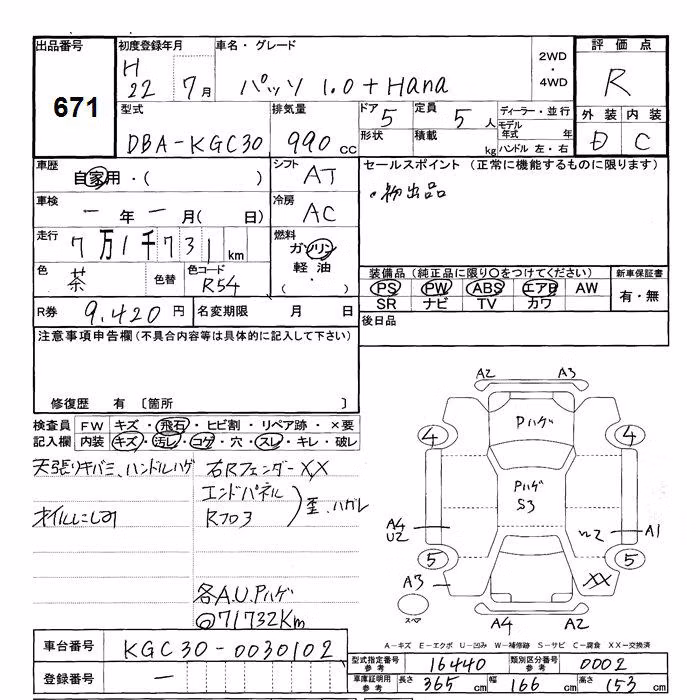 出品番号
671
初度登録年月
H
22 7月
車名・グレード
パッソ 1.0+Hana
2WD
・
4WD
評価点
R
外装 内装
D C
型式
DBA-KGC30
排気量
990 cc
ドア 5
定員 5 人
形状
積載 kg
ディーラー・並行
モデル年式 年
ハンドル 左・右
車歴
自家用・( )
シフト
AT
車検
ー年ー月( 日)
冷房
AC
走行
7万1千731 km
燃料
ガソリン
軽油
・
( )
色
茶
色替
色コード
R54
R券 9,420円
名変期限 月 日
セールスポイント(正常に機能するものに限ります)
・初出品
装備品(純正品に限り○をつけてください)
PS PW ABS エアB AW
SR ナビ TV カワ
新車保証書
有・無
後日品
注意事項申告欄(不具合内容等は具体的に記入して下さい)
修復歴 有 〔箇所 〕
検査員記入欄
FW キズ・飛石・ヒビ割・リペア跡・×要
内装 キズ・汚レ・コゲ・穴・スレ・キレ・破レ
天張りキバミ、ハンドルハゲ
オイルにじみ
右Rフェンダー XX
エンドパネル
Rフロ3
歪、ハガレ
各A.U.Pハゲ
◎71732Km
A2 A3
Pハゲ
4 4
Pハゲ
S3
A4
U2
W2
A1
5 5
A3
XX
スペア
A4 A2
A-キズ E-エクボ U-凹み W-補修跡 S-サビ C-腐食 XX-交換済
車台番号
KGC30-0030102
登録番号
ー
型式指定番号 参考
16440
類別区分番号 参考
0002
車庫証明用 参考
長さ 365 cm
幅 166 cm
高さ 153 cm